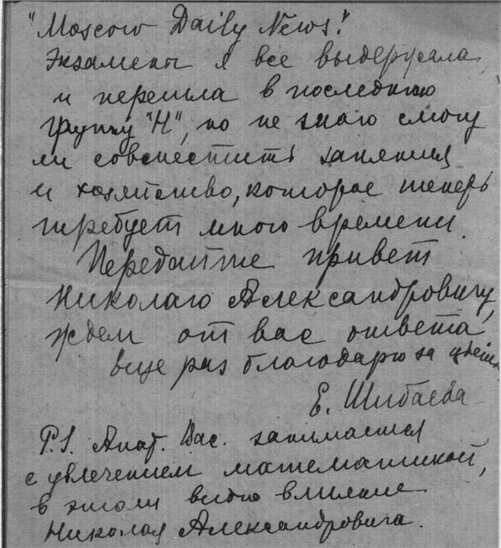 "Moscow Daily News".
Экзамены я все выдержала
и перешла в последнюю
группу "Н", но не знаю смогу
ли совместить занятия
и хозяйство, которое теперь
требует много времени.
Передайте привет
Николаю Александровичу,
ждем от вас ответа
еще раз благодарю за цветы.
Е. Шибаева
P.S. Анат. Вас. занимается
с увлечением математикой,
в этом видно влияние
Николая Александровича.